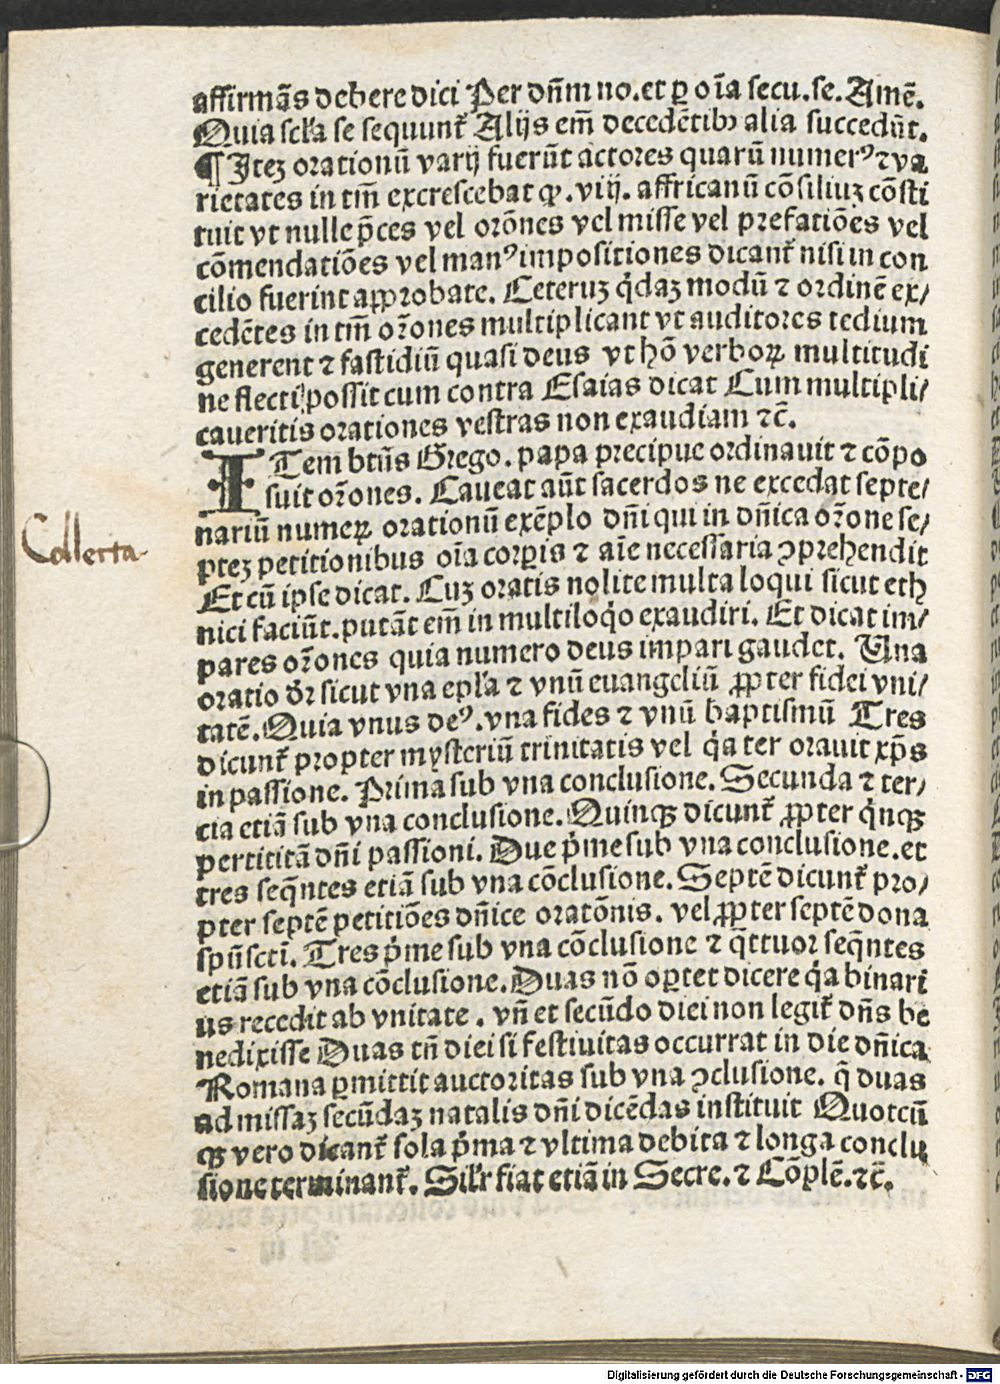 affirmãs debere dici Per dñm no. et ꝑ oĩa secu. se. Amẽ.
Quia scl'a se sequunt᷑ Alijs em̃ decedẽtibꝰ alia succedũt.
¶ Itez orationũ varij fuerũt actores quarũ numerꝰ ⁊ va
rietates in tm̃ excrescebat ꝙ .vij. affricanũ cõsiliuz cõsti
tuit vt nulle p̃ces vel orõnes vel misse vel prefatiões vel
cõmendatiões vel manꝰ impositiones dicant᷑ nisi in con
cilio fuerint aꝓprobate. Ceteruz q̇daz modũ ⁊ ordinẽ ex/
cedẽtes in tm̃ or̃ones multiplicant vt auditores tedium
generent ⁊ fastidiũ quasi deus vt hõ verboꝝ multitudi
ne flecti possit cum contra Esaias dicat Cum multipli/
caueritis orationes vestras non exaudiam ⁊c̃.
ITem btũs Grego. papa precipue ordinauit ⁊ cõpo
suit or̃ones. Caueat aũt sacerdos ne excedat septe/
nariũ numeꝝ orationũ exẽplo dñi qui in dñica or̃one se/
ptez petitionibus oĩa corꝑis ⁊ aĩe necessaria ꝯprehendit
Et cũ ipse dicat. Cuz oratis nolite multa loqui sicut eth
nici faciũt. putãt em̃ in multiloq̇o exaudiri. Et dicat im/
pares or̃ones quia numero deus impari gaudet. Una
oratio dr̃ sicut vna epl'a ⁊ vnũ euangeliũ ꝓpter fidei vni/
tatẽ. Quia vnus deꝰ. vna fides ⁊ vnũ baptismũ Tres
dicunt᷑ propter mysteriũ trinitatis vel q̇a ter orauit xp̃s
in passione. Prima sub vna conclusione. Secunda ⁊ ter/
cia etiã sub vna conclusione. Quinqꝫ dicunt᷑ ꝓpter q̇nqꝫ
pertititã dñi passioni. Due p̃me sub vna conclusione. et
tres seq̃ntes etiã sub vna cõclusione. Septẽ dicunt᷑ pro/
pter septẽ petitiões dñice oratõnis. vel ꝓpter septẽ dona
spũscti. Tres p̃me sub vna cõclusione ⁊ q̃ttuor seq̃ntes
etiã sub vna cõclusione. Duas nõ oꝑtet dicere q̇a binari
us recedit ab vnitate. vñ et secũdo diei non legit᷑ dñs be
nedixisse Duas tñ diei si festiuitas occurrat in die dñica
Romana ꝑmittit auctoritas sub vna ꝯclusione. q̃ duas
ad missaz secũdaz natalis dñi dicẽdas instituit Quotcũ
qꝫ vero dicant᷑ sola p̃ma ⁊ vltima debita ⁊ longa conclu
sione terminant᷑. Sil'r fiat etiã in Secre. ⁊ Cõplẽ. ⁊c̃.
Collecta
Digitalisierung gefördert durch die Deutsche Forschungsgemeinschaft - DFG